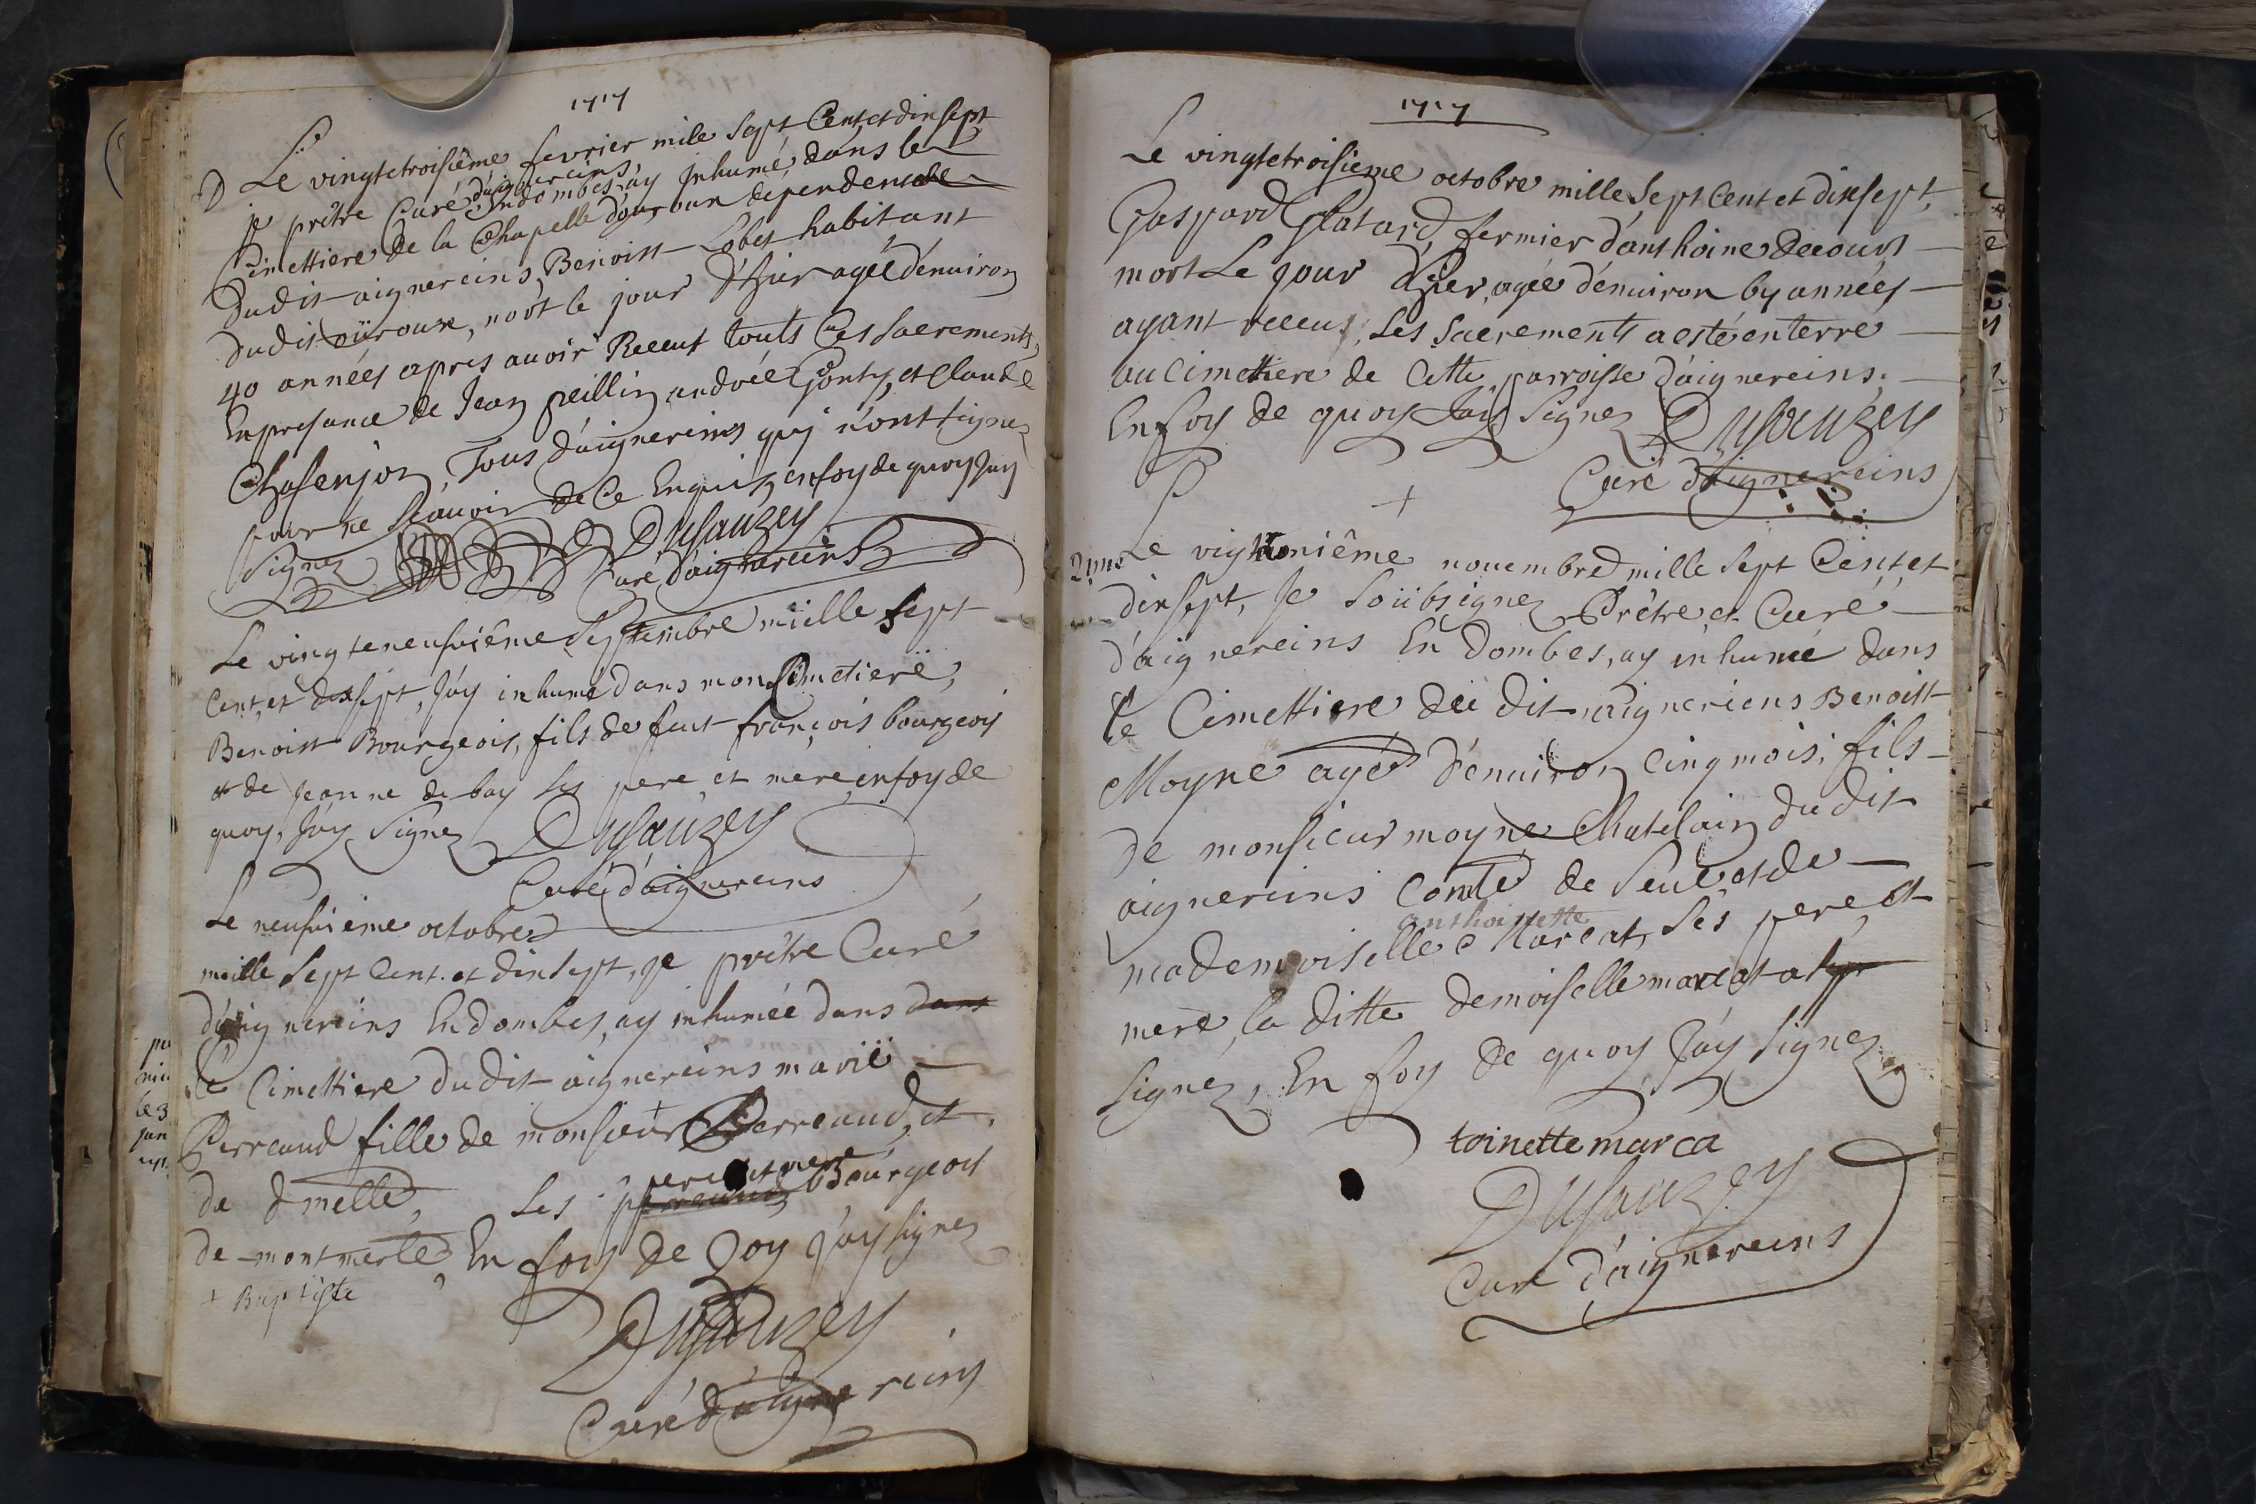 1717
Le vingtetroisième fevrier mile sept Cent et dinsept
je prêtre Curé d'aignereins Endombes, ay Inhumé, dans le
Cimettiere de la Chapelle d'ouroux dependende
dudit aignereins Benoist Lobet habitant
dudit oüroux, mort le jour d'hier agéé d'enuiron
40 années apres auoir Receut touts Ces sacrements,
En presance de Jean peillin andréé Gonty, et Claude
Chasenjon, Tous d'aignereins quj n'ont signez
pour ne sçauoir de Ce Enquis, en foy de quoy J'ay
signez Dusauzey
Curé, d'aignereins
Le vingteneufuiême Septembre mille sept
Cent, et dixsept, J'ay inhumé dans mon Cimetiere,
Benoist Bourgeois, fils de feut françois bourgeois
et de Jeanne de bay ses pere et mere, en foy de
quoy, J'ay Signez Dusauzey
Curé d'aignereins
Le neufuiême octobre
mille sept Cent. et dinsept, je prêtre Curé
d'aignereins En dombes, ay inhumée dans dans
le Cimettiere dudit aignereins marië
Perreaud fille de monsieur + Perreaud, et
de dmelle, ses pere et mere Bourgeois
de montmerle, En foy de qoy J'ay signez
+ Baptiste
Dusauzey
Curé d'aignereins
1717
Le vingtetroisieme octobre mille, sept Cent et dixsept,
Gaspard Glatard, fermier d'anthoine Decours
mort Le jour d'hier, agéé d'enuiron 65 annéés
ayant receus, Les sacrements a esté enterré
au Cimettiere de Cette parroisse d'aignereins.
En foy de quoy J'ay Signez Dusauzey
Curé d'aignereins
+
Le vigtuniême nouembre mille sept Cent et
dinsept, Je soübsignez Prêtre, et Curé
d'aignereins En Dombes, ay inhumé dans
le Cimettiere du dit aigneriens Benoist
Moyne agé d'enuiron Cinq mois, fils
de monsieur moyne Chatelain du dit
aignereins Comte de et de
anthoinette
mademoiselle Marcat, ses pere, et
mere, la ditte demoiselle marcat a
Signez, En foy de quoy J'ay signez
toinette marca
Dusauzey
Curé d'aignereins